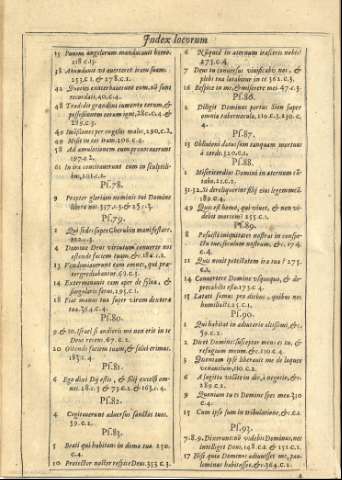 Index locorum
25 Panem angelorum manducauit homo.
218.c.1.
38 Abundauit vt auerteret iram suam.
253.c.1. & 278.c.2.
40 Quoties exacerbauerunt eum,
40.c.4.
48 Tradidit grandini iumenta eorum, &
possessionem eorum igni,
58 Ad æmulationem eum prouocauerunt
197.c.2.
61 In ira concitauerunt eum in sculptili-
Ps.78.
9 Propter gloriam nominis tui Domine
libera nos. 357.c.3.
Ps.79.
2 Qui sedes super Cherubin manifestare.
4 Domine Deus virtutum conuerte nos
ostende faciem tuam, &
13 Vindemiauerunt eam omnes, qui præ-
tergrediuntur. 69.c.3.
14 Exterminauit eam aper de silua, &
singularis ferus. 295.c.1.
18 Fiat manus tua super virum dexteræ
tuæ. 354.c.4.
Ps.80.
9. & 10. Israel si audieris me non erit in te
Deus recens. 67.c.2.
20 Ostende faciem tuam, & salui erimus.
183.c.4.
Ps.81.
6 Ego dixi Dij estis, & filij excelsi om-
nes. 28.c.3. & 73.c.2. & 163.c.4.
Ps.82.
4 Cogitauerunt aduersus sanctos tuos.
39.c.2.
Ps.83.
5 Beati qui habitant in domo tua. 250
c.4.
10 Protector noster respice Deus. 353.c.3.
6 Nunquid in æternum irasceris nobis?
273.c.4.
7 Deus tu conuersus viuificabis nos, &
plebs tua lætabitur in te. 362.c.3.
16 Respice in me, & miserere mei. 67.c.3.
Ps.86.
2 Diligit Dominus portas Sion super
omnia tabernacula,
c.4.
Ps.87.
13 Obliuioni datus sum tanquam mortuus
à corde. 320.c.1.
Ps.88.
2 Misericordias Domini in æternum cã-
tabo. 21.c.2.
31.32. Si dereliquerint filij eius legem meã.
189.c.4.
49 Quis est homo, qui viuet, & non vi-
debit mortem? 255.c.2.
Ps.89.
8 Posuisti iniquitates nostras in conspe-
ctu tuo, sæculum nostrum, &c. 174.
c.4.
11 Quis nouit potestatem iræ tuæ? 275
14 Conuertere Domine vsquequo, & de-
precabilis esto. 173.c.4.
15 Lætati sumus pro diebus, quibus nos
humiliasti. 25.c.1.
Ps.90.
1 Qui habitat in adiutorio altissimi, &c.
59.c.2.
2 Dicet Domino: susceptor meus es tu, &
refugium meum, &c. 110.c.4.
3 Quoniam ipse liberauit me de laqueo
venantium, 110.c.4.
6 A sagitta volante in die, à negotio, &c.
289.c.2.
9 Quoniam tu es Domine spes mea. 350
c.4.
15 Cum ipso sum in tribulatione, &c.
Ps.93.
7.8.9. Dixerunt nõ videbit Dominus, nec
intelliget Deus. 148.c.2. & 151.c.1.
17 Nisi quia Dominus adiuuisset me, pau-
lominus habitasset, &c. 364.c.1.